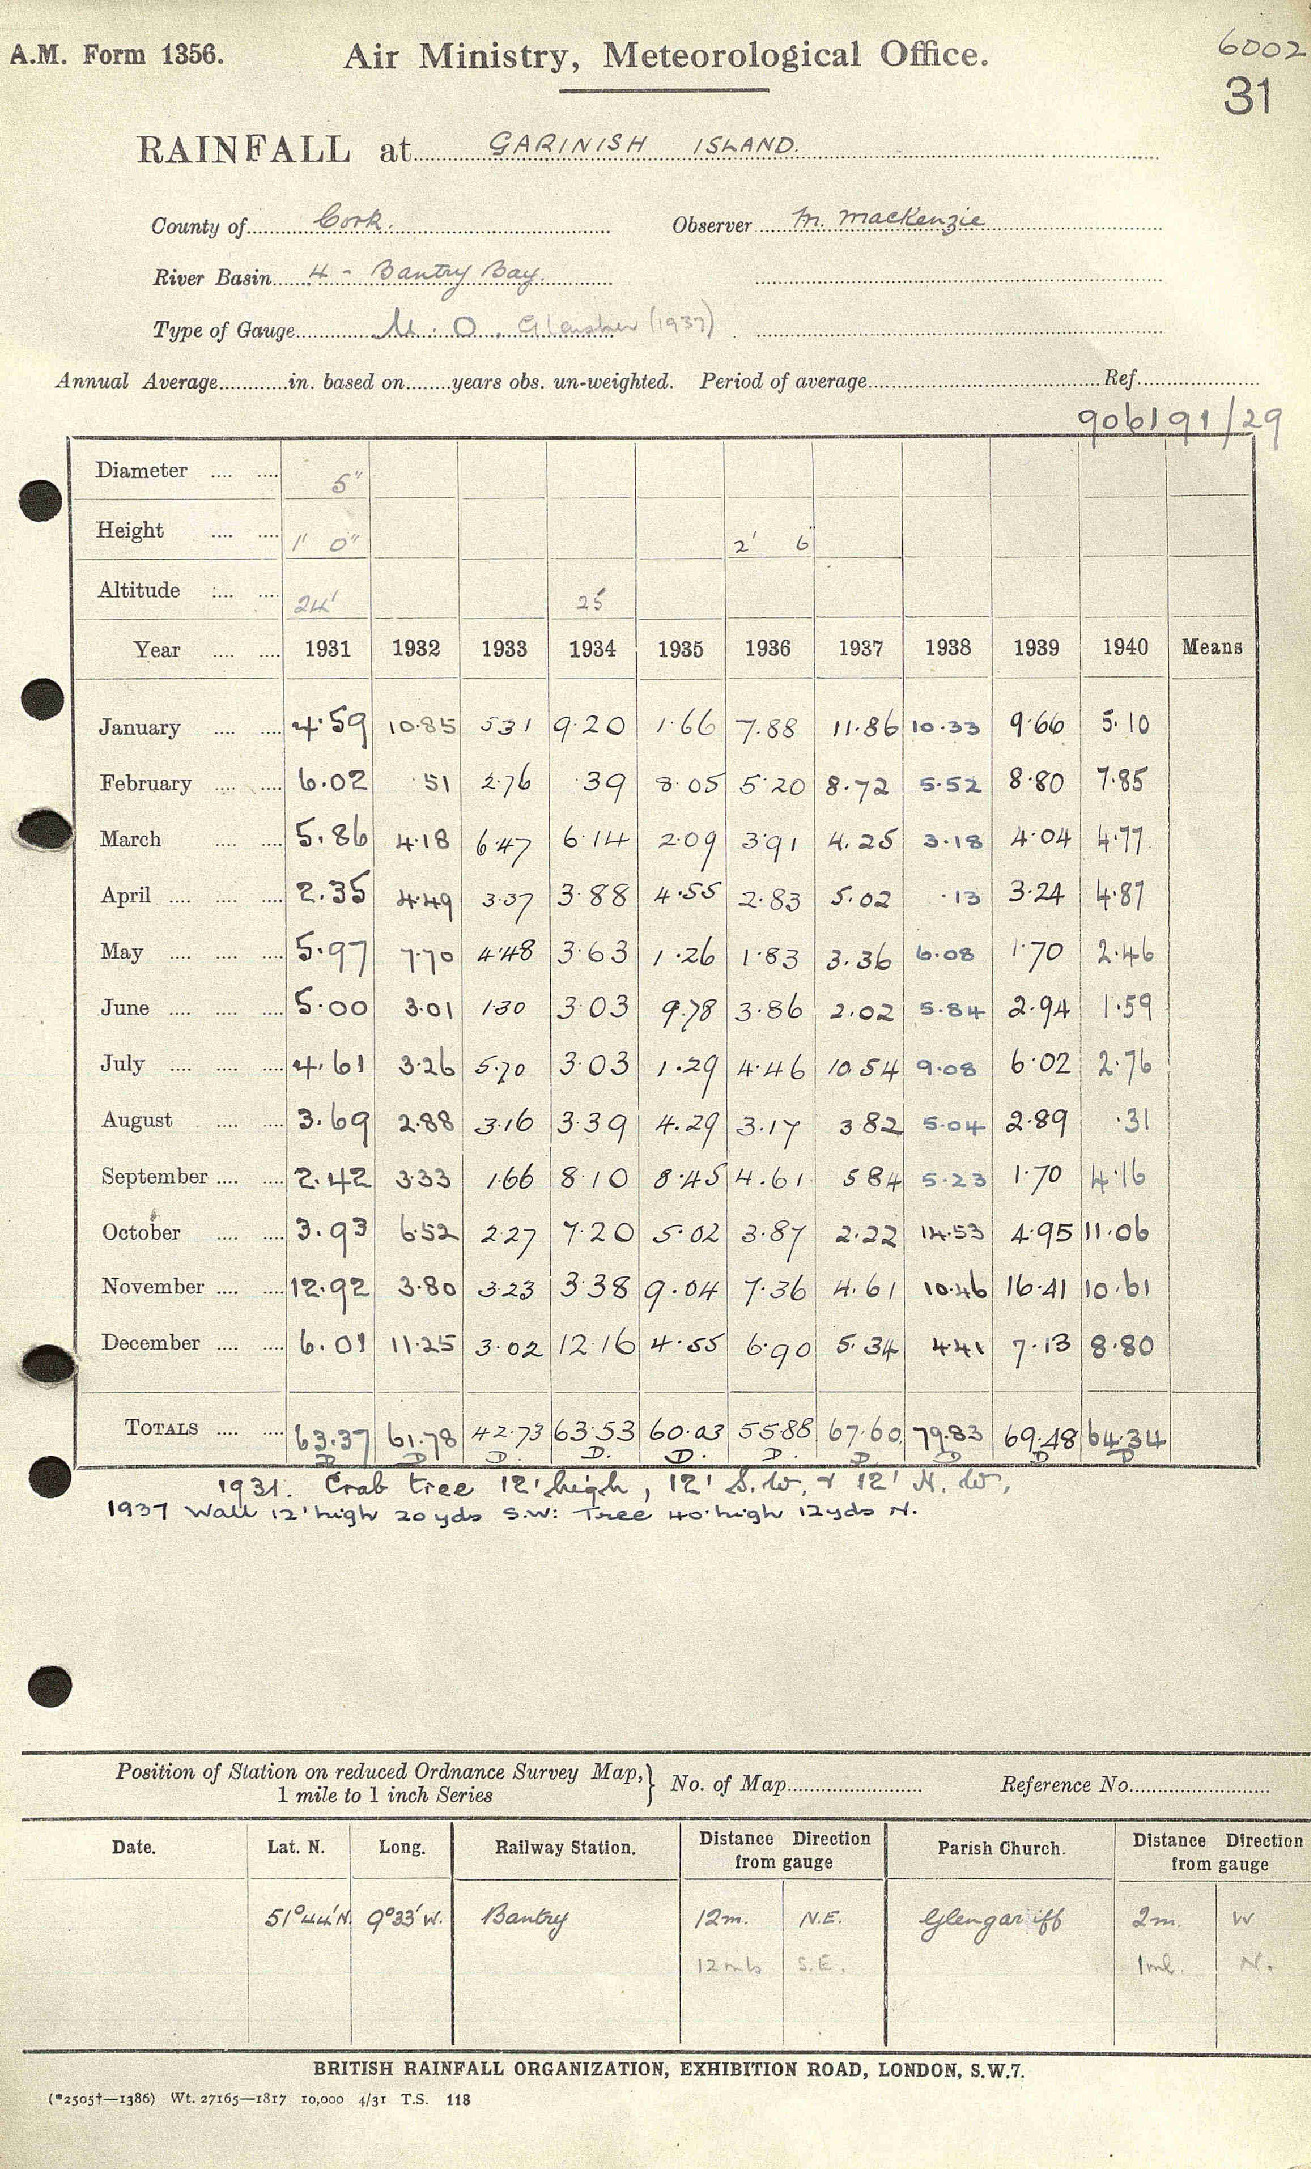 A.M. Form 1356.
Air Ministry, Meteorological Office.
6002
31
RAINFALL at GARINISH ISLAND.
County of Cork. Observer M. MacKenzie
River Basin 4 - Bantry Bay
Type of Gauge M.O. Glaisher (1937)
Annual Average............in. based on........years obs. un-weighted. Period of average............Ref............
906191/29
Diameter 5"
Height 1' 0" 2' 6"
Altitude 24' 25
Year 1931 1932 1933 1934 1935 1936 1937 1938 1939 1940 Means
January 4.59 10.85 5.31 9.20 1.66 7.88 11.86 10.33 9.66 5.10
February 6.02 .51 2.76 .39 8.05 5.20 8.72 5.52 8.80 7.85
March 5.86 4.18 6.47 6.14 2.09 3.91 4.25 3.18 4.04 4.77
April 2.35 4.49 3.37 3.88 4.55 2.83 5.02 .13 3.24 4.87
May 5.97 7.70 4.48 3.63 1.26 1.83 3.36 6.08 1.70 2.46
June 5.00 3.01 1.30 3.03 9.78 3.86 2.02 5.84 2.94 1.59
July 4.61 3.26 5.70 3.03 1.29 4.46 10.54 9.08 6.02 2.76
August 3.69 2.88 3.16 3.39 4.29 3.17 3.82 5.04 2.89 .31
September 2.42 3.33 1.66 8.10 8.45 4.61 5.84 5.23 1.70 4.16
October 3.93 6.52 2.27 7.20 5.02 3.87 2.22 14.53 4.95 11.06
November 12.92 3.80 3.23 3.38 9.04 7.36 4.61 10.46 16.41 10.61
December 6.01 11.25 3.02 12.16 4.55 6.90 5.34 4.41 7.13 8.80
TOTALS 63.37 61.78 42.73 63.53 60.03 55.88 67.60 79.83 69.48 64.34
D D D. D. D. D. D D D D
1931. Crab tree 12' high, 12' S.W. & 12' N.W.
1937 Wall 12' high 20 yds S.W: Tree 40' high 12yds N.
Position of Station on reduced Ordnance Survey Map, 1 mile to 1 inch Series } No. of Map............ Reference No............
Date. Lat. N. Long. Railway Station. Distance Direction from gauge Parish Church. Distance Direction from gauge
51°44'N. 9°33'W. Bantry 12m. N.E. Glengariff 2m. W
12mls S.E. 1ml. N.
BRITISH RAINFALL ORGANIZATION, EXHIBITION ROAD, LONDON, S.W.7.
(*2505†—1386) Wt. 27165—1817 10,000 4/31 T.S. 118